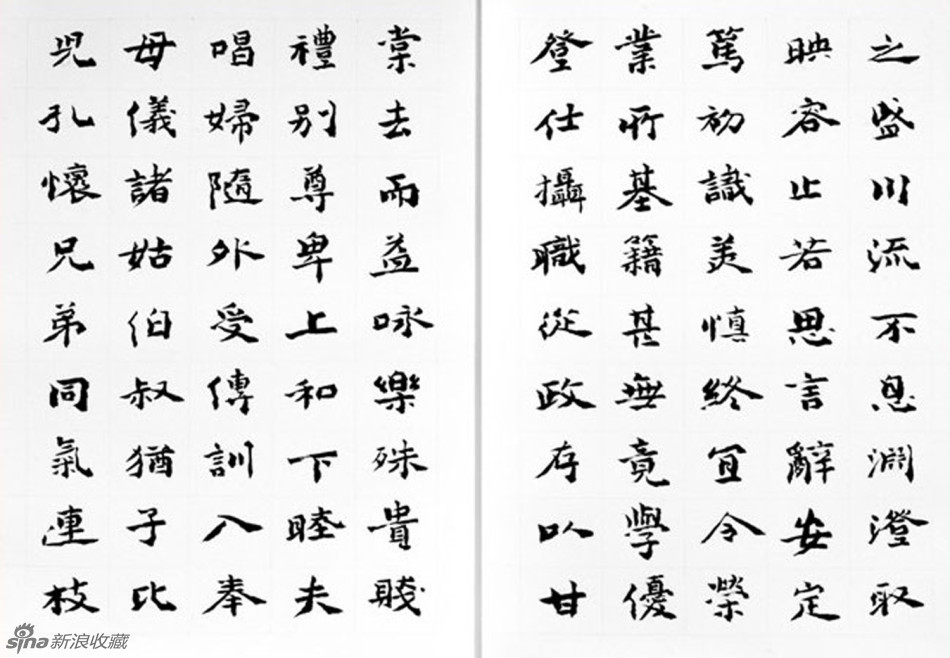 之盛川流不息淵澄取
映容止若思言辭安定
篤初識美慎終宜令榮
業所基籍甚無竟學優
登仕攝職從政存以甘
棠去而益咏樂殊貴賤
禮別尊卑上和下睦夫
唱婦隨外受傅訓入奉
母儀諸姑伯叔猶子比
兒孔懷兄弟同氣連枝
sina新浪收藏